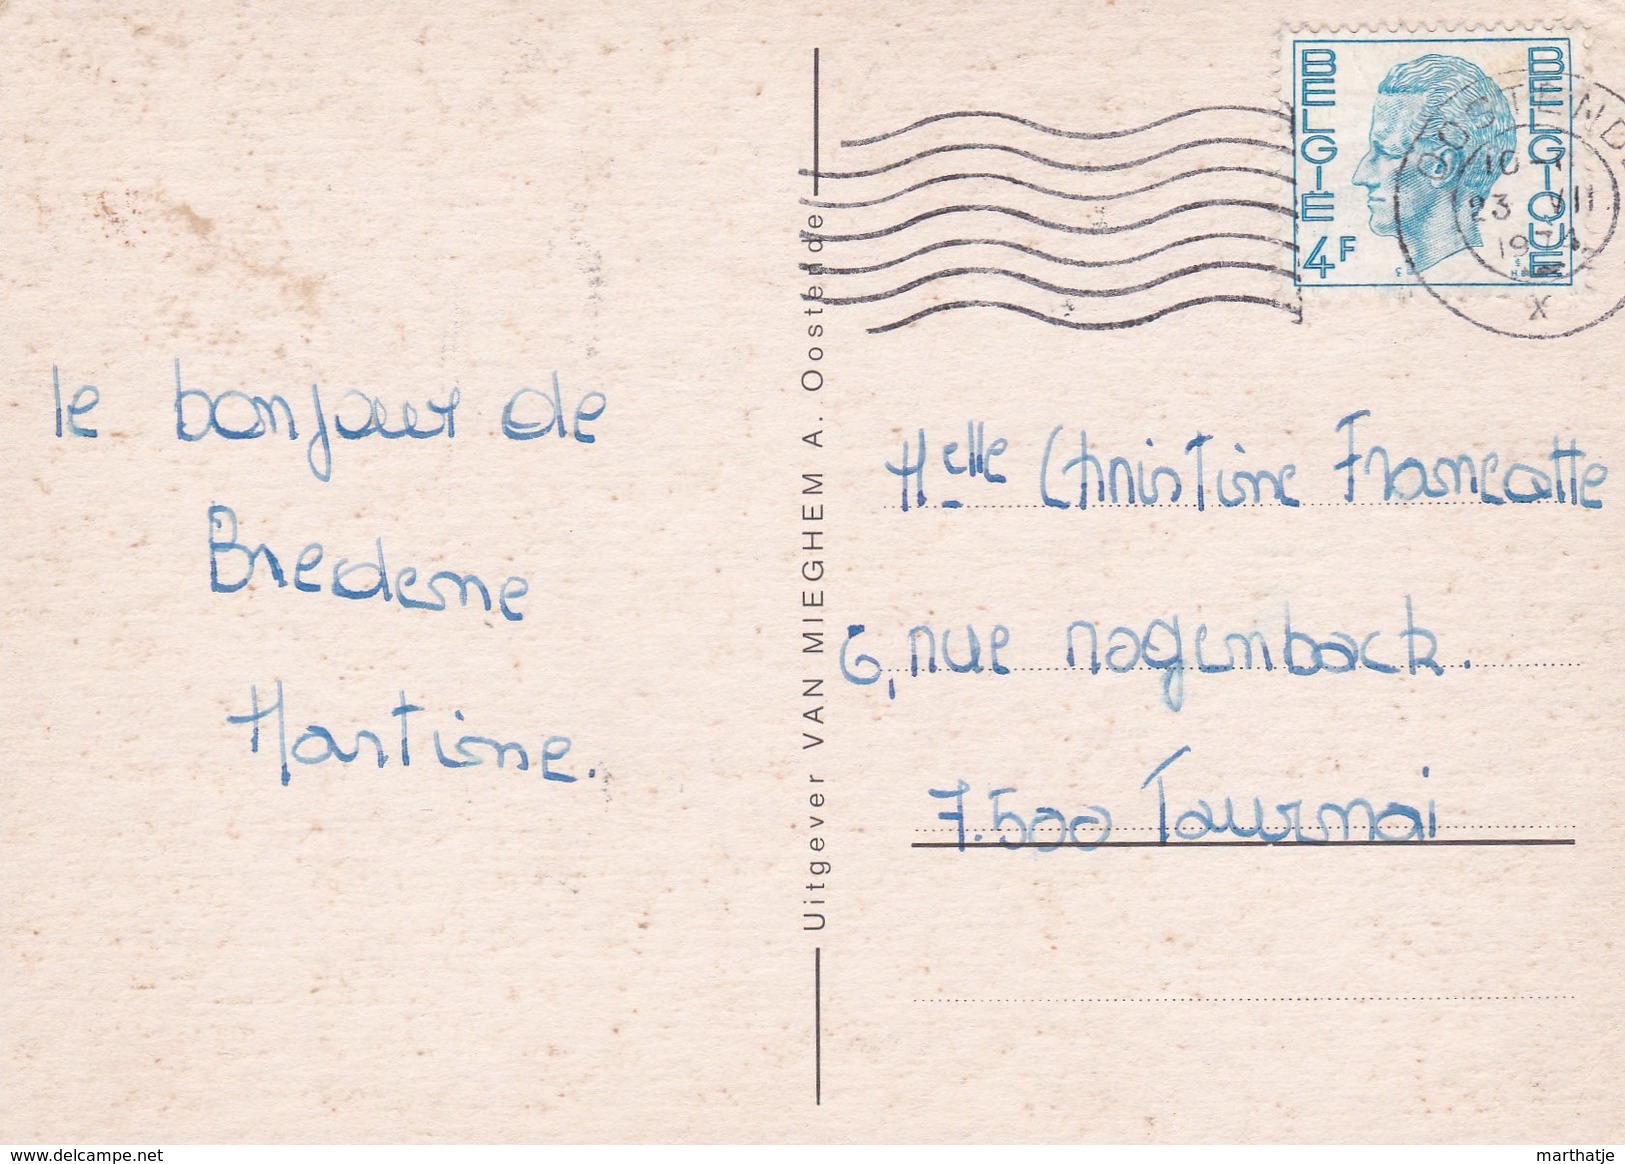 le bonjour de
Bredene
Martine.
Uitgever VAN MIEGHEM A. Oostende
BELGIE
BELGIQUE
4F
OOSTENDE
23 VII
1974
X
Melle Christine Francotte
6, rue ragenback.
7.500 Tournai
www.delcampe.net
marthatje